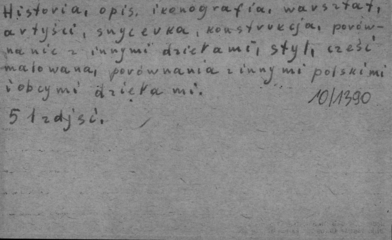 Historia, opis, ikonografia, warsztat,
artyści, snycerka, konstrukcja, porów-
nanie z innymi dziełami, styl, cześć
malowana, porównania z innymi polskimi
i obcymi dziełami.
10/1390
51 zdjęć.